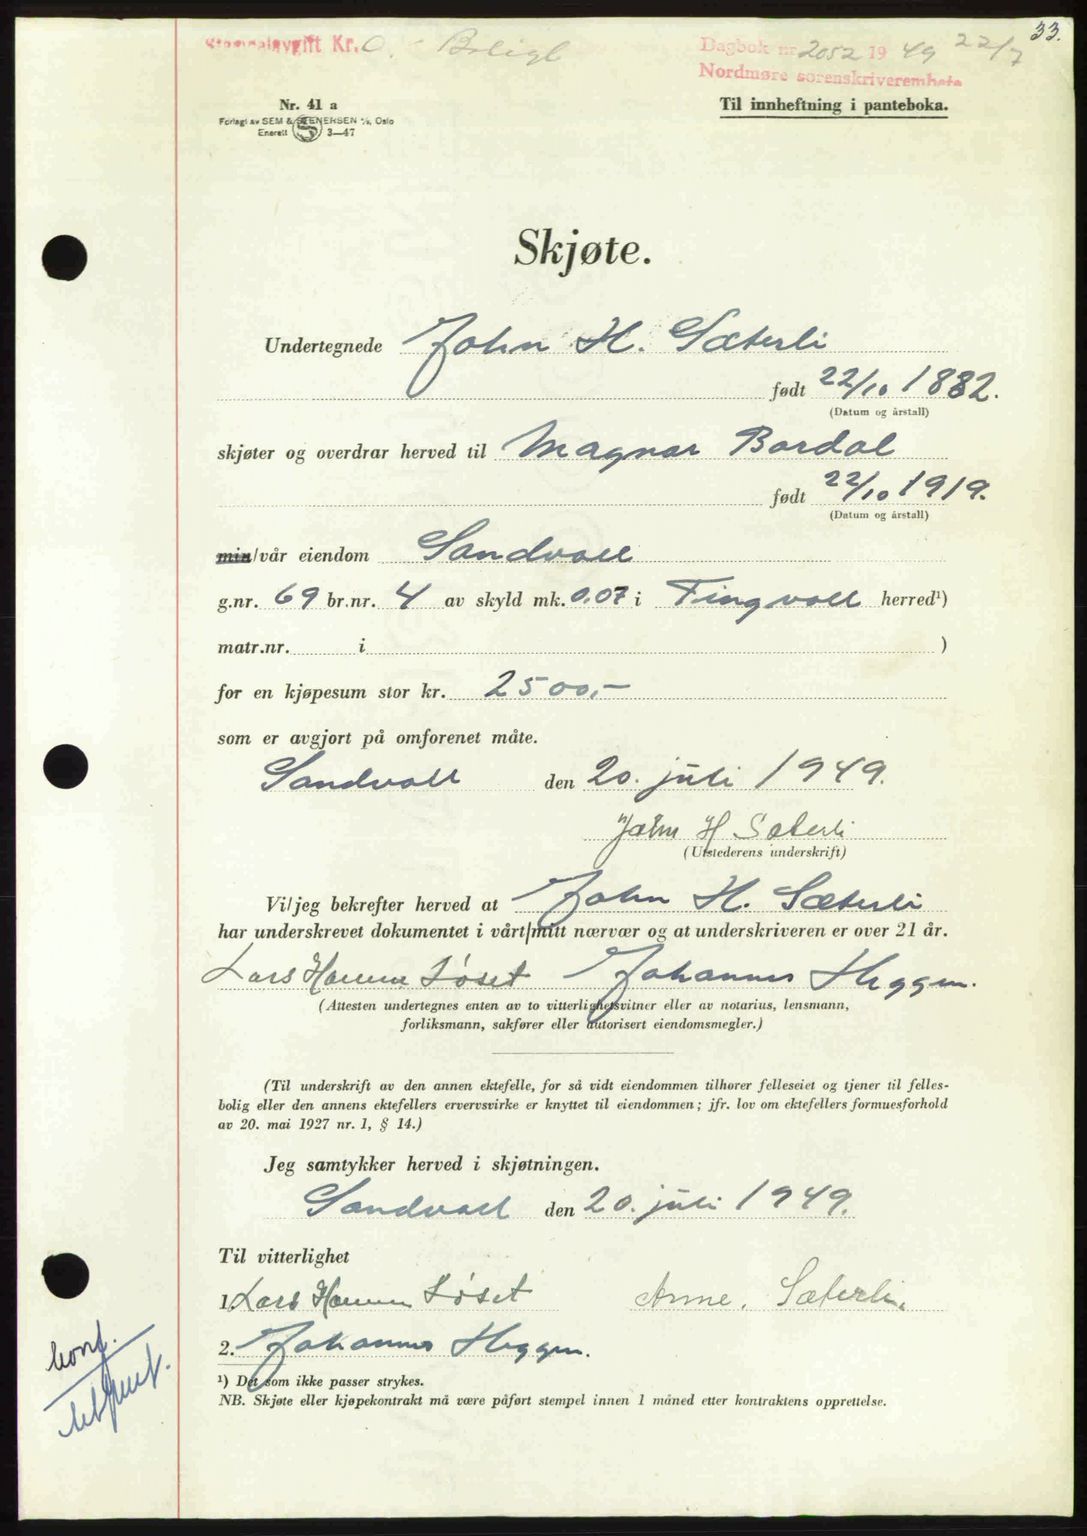 33.
Stempelavgift Kr. 0. - Boligl
Dagbok nr. 2052 19 49 22/7
Nordmøre sorenskriverembete
Nr. 41 a
Forlagt av SEM & STENERSEN A/S, Oslo
Enerett S 3—47
Til innheftning i panteboka.
Skjøte.
Undertegnede John H. Sæterli
født 22/10 1882.
(Datum og årstall)
skjøter og overdrar herved til Magnar Bardal
født 22/10 1919.
(Datum og årstall)
min/vår eiendom Sandvoll
g.nr. 69 br.nr. 4 av skyld mk. 0.07 i Tingvoll herred¹)
matr.nr. i )
for en kjøpesum stor kr. 2500,-
som er avgjort på omforenet måte.
Sandvoll den 20. juli 1949.
John H Sæterli
(Utstederens underskrift)
Vi/jeg bekrefter herved at John H. Sæterli
har underskrevet dokumentet i vårt/mitt nærvær og at underskriveren er over 21 år.
Lars Løset Johannes Heggem.
(Attesten undertegnes enten av to vitterlighetsvitner eller av notarius, lensmann,
forliksmann, sakfører eller autorisert eiendomsmegler.)
(Til underskrift av den annen ektefelle, for så vidt eiendommen tilhører felleseiet og tjener til felles-
bolig eller den annens ektefellers ervervsvirke er knyttet til eiendommen; jfr. lov om ektefellers formuesforhold
av 20. mai 1927 nr. 1, § 14.)
Jeg samtykker herved i skjøtningen.
Sandvoll den 20. juli 1949.
Til vitterlighet
1. Lars Løset Anne. Sæterli.
2. Johannes Heggem.
¹) Det som ikke passer strykes.
NB. Skjøte eller kjøpekontrakt må være påført stempel innen 1 måned etter kontraktens opprettelse.
konf.